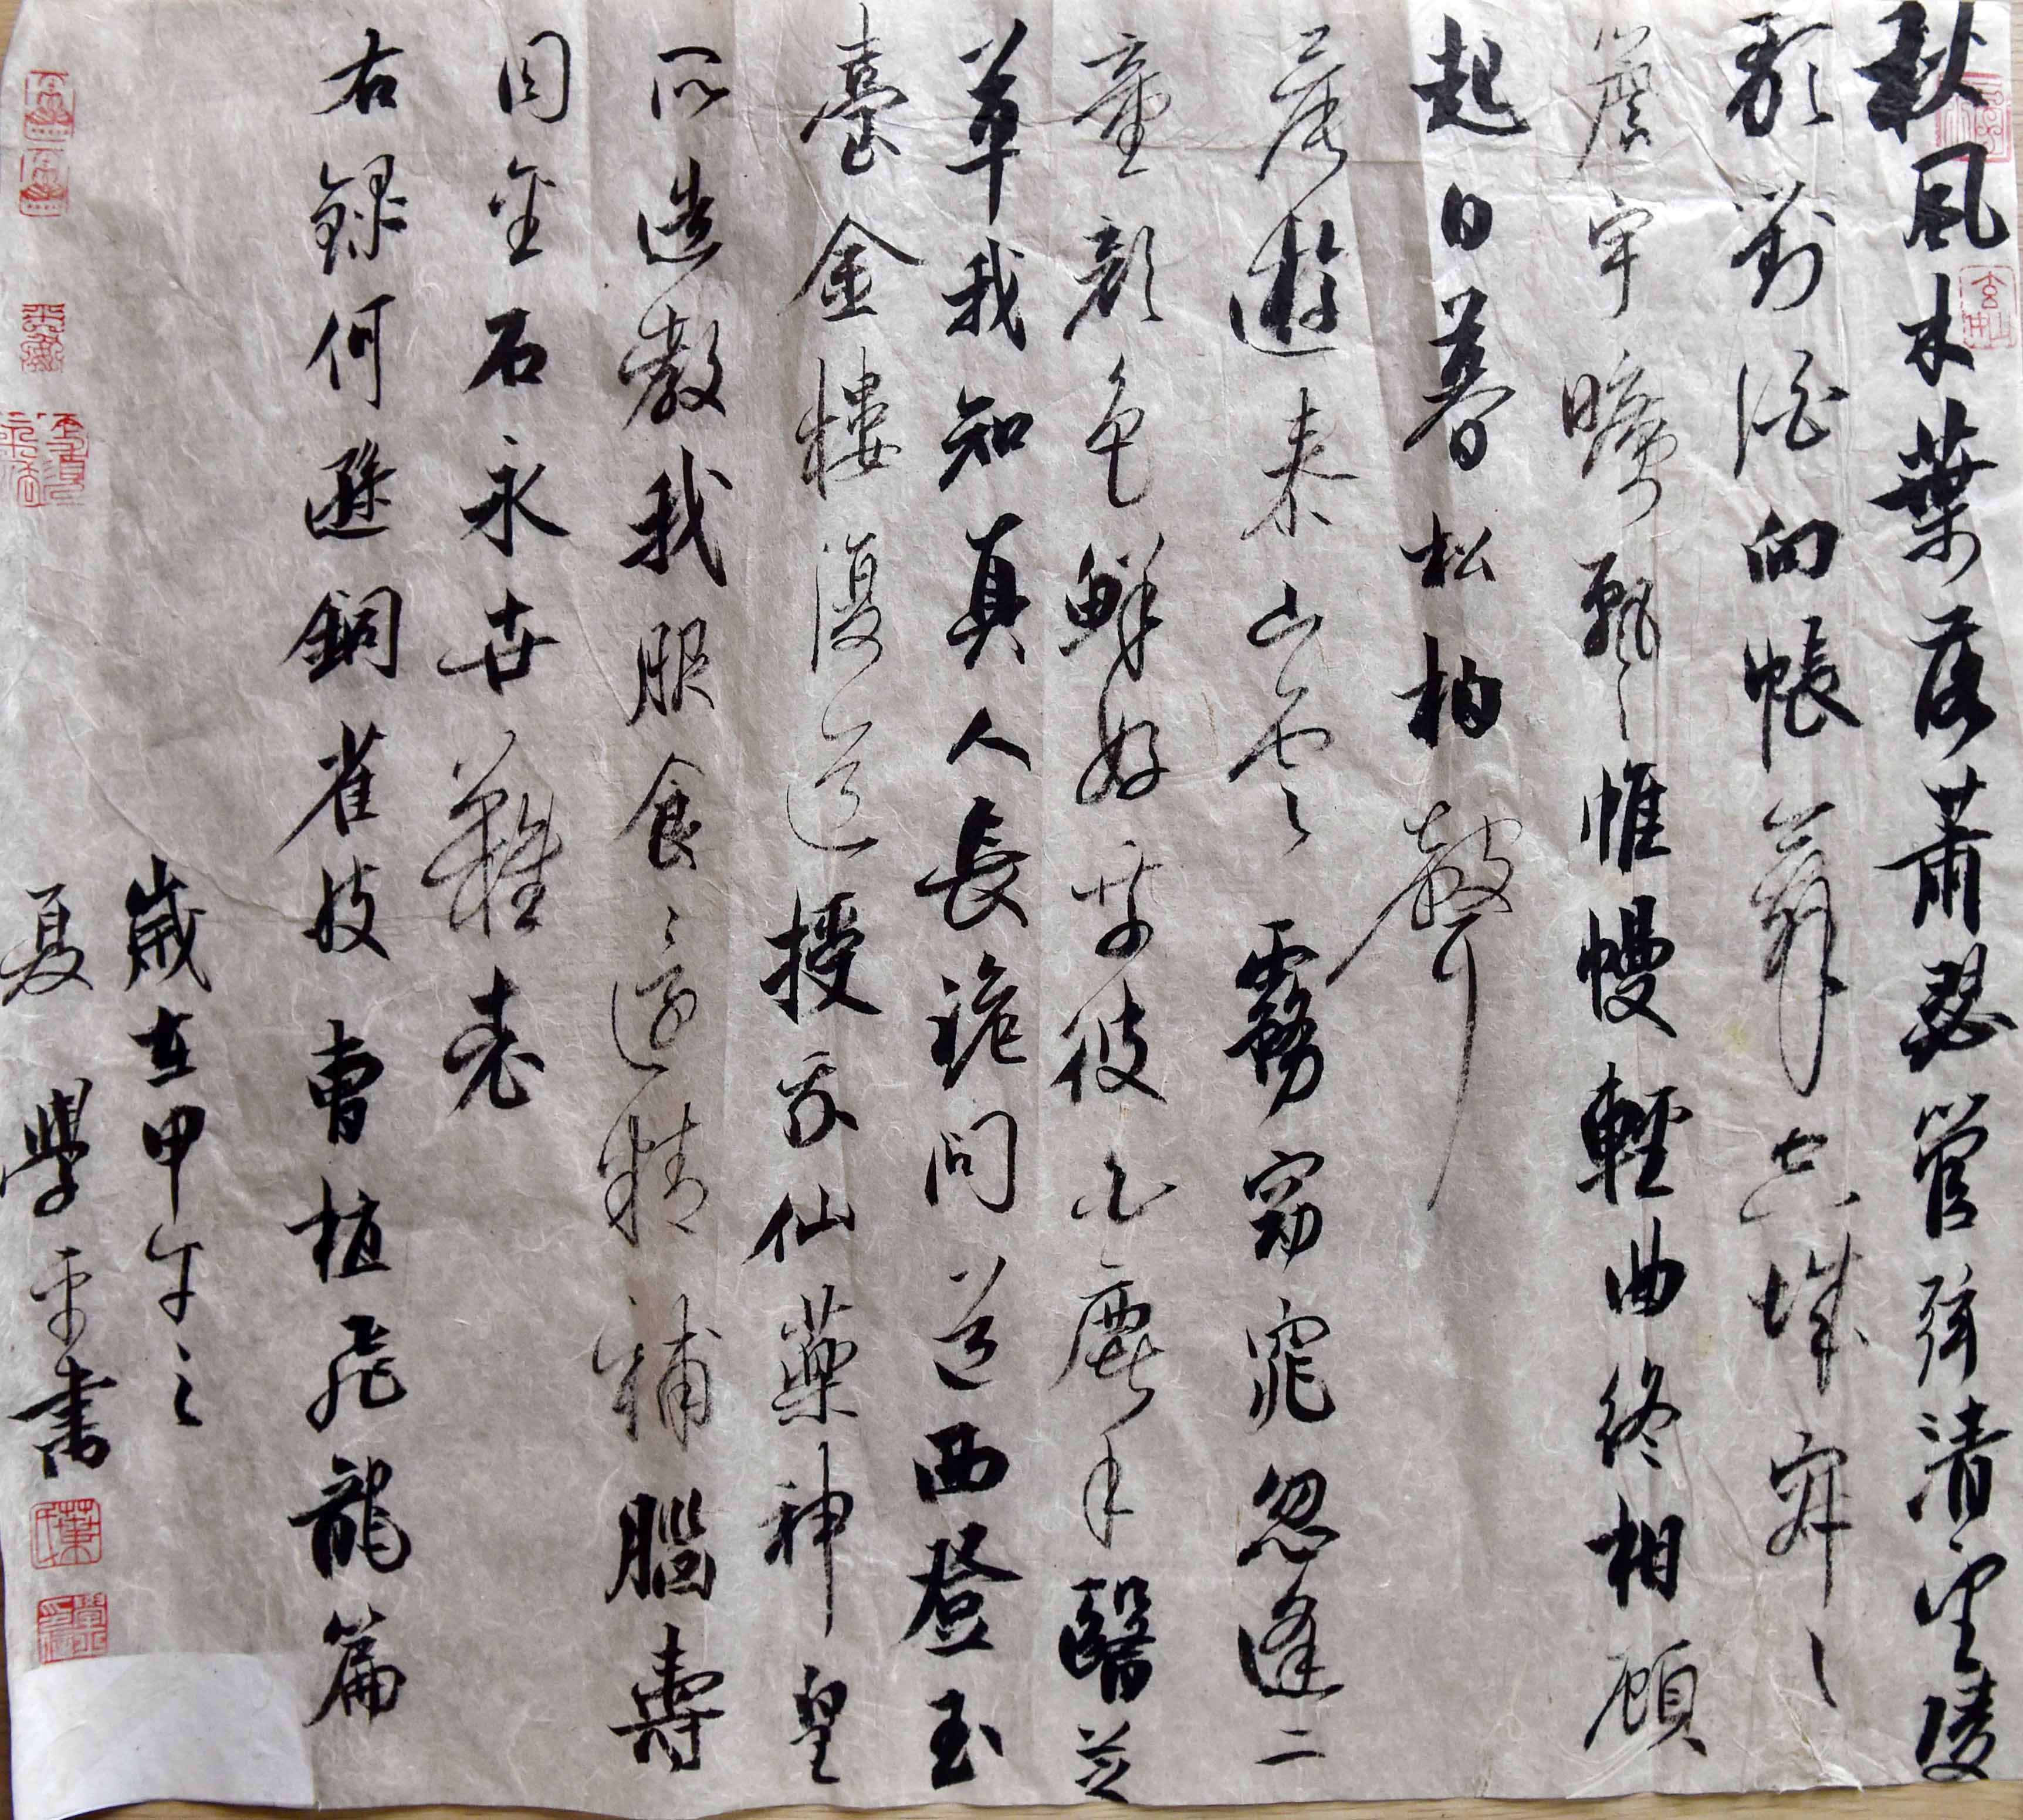 秋風木葉落蕭瑟管弦清望陵
歌對酒向帳舞空城寂〻
簷宇曠飄〻帷幔輕曲終相顧
起日暮松柏聲
晨遊泰山雲〻霧窈窕忽逢二
童顏色鮮好乘彼白鹿手翳芝
草我知真人長跪問道西登玉
臺金樓復道授我仙藥神皇
所造教我服食〻還精補腦壽
同金石永世難老
右錄何遜銅雀妓曹植飛龍篇
歲在甲午之
夏學平書